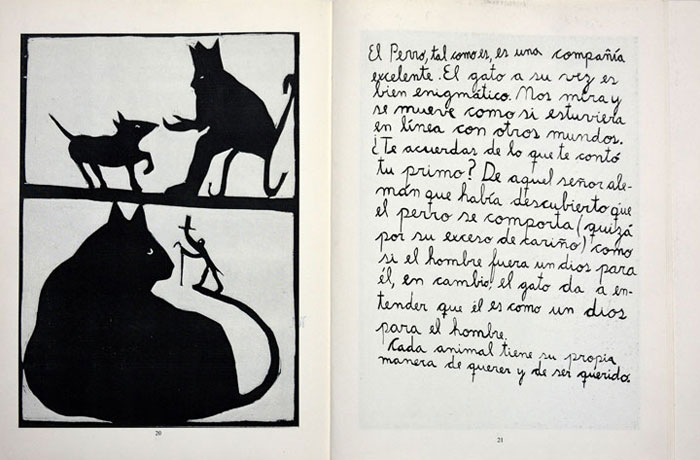 El Perro, tal como es, es una compañía
excelente. El gato a su vez es
bien enigmático. Nos mira y
se mueve como si estuviera
en línea con otros mundos.
¿Te acuerdas de lo que te contó
tu primo? De aquel señor ale-
mán que había descubierto que
el perro se comporta (quizá
por su exceso de cariño) como
si el hombre fuera un dios para
él, en cambio, el gato da a en-
tender que él es como un dios
para el hombre.
Cada animal tiene su propia
manera de querer y de ser querido.
20
21